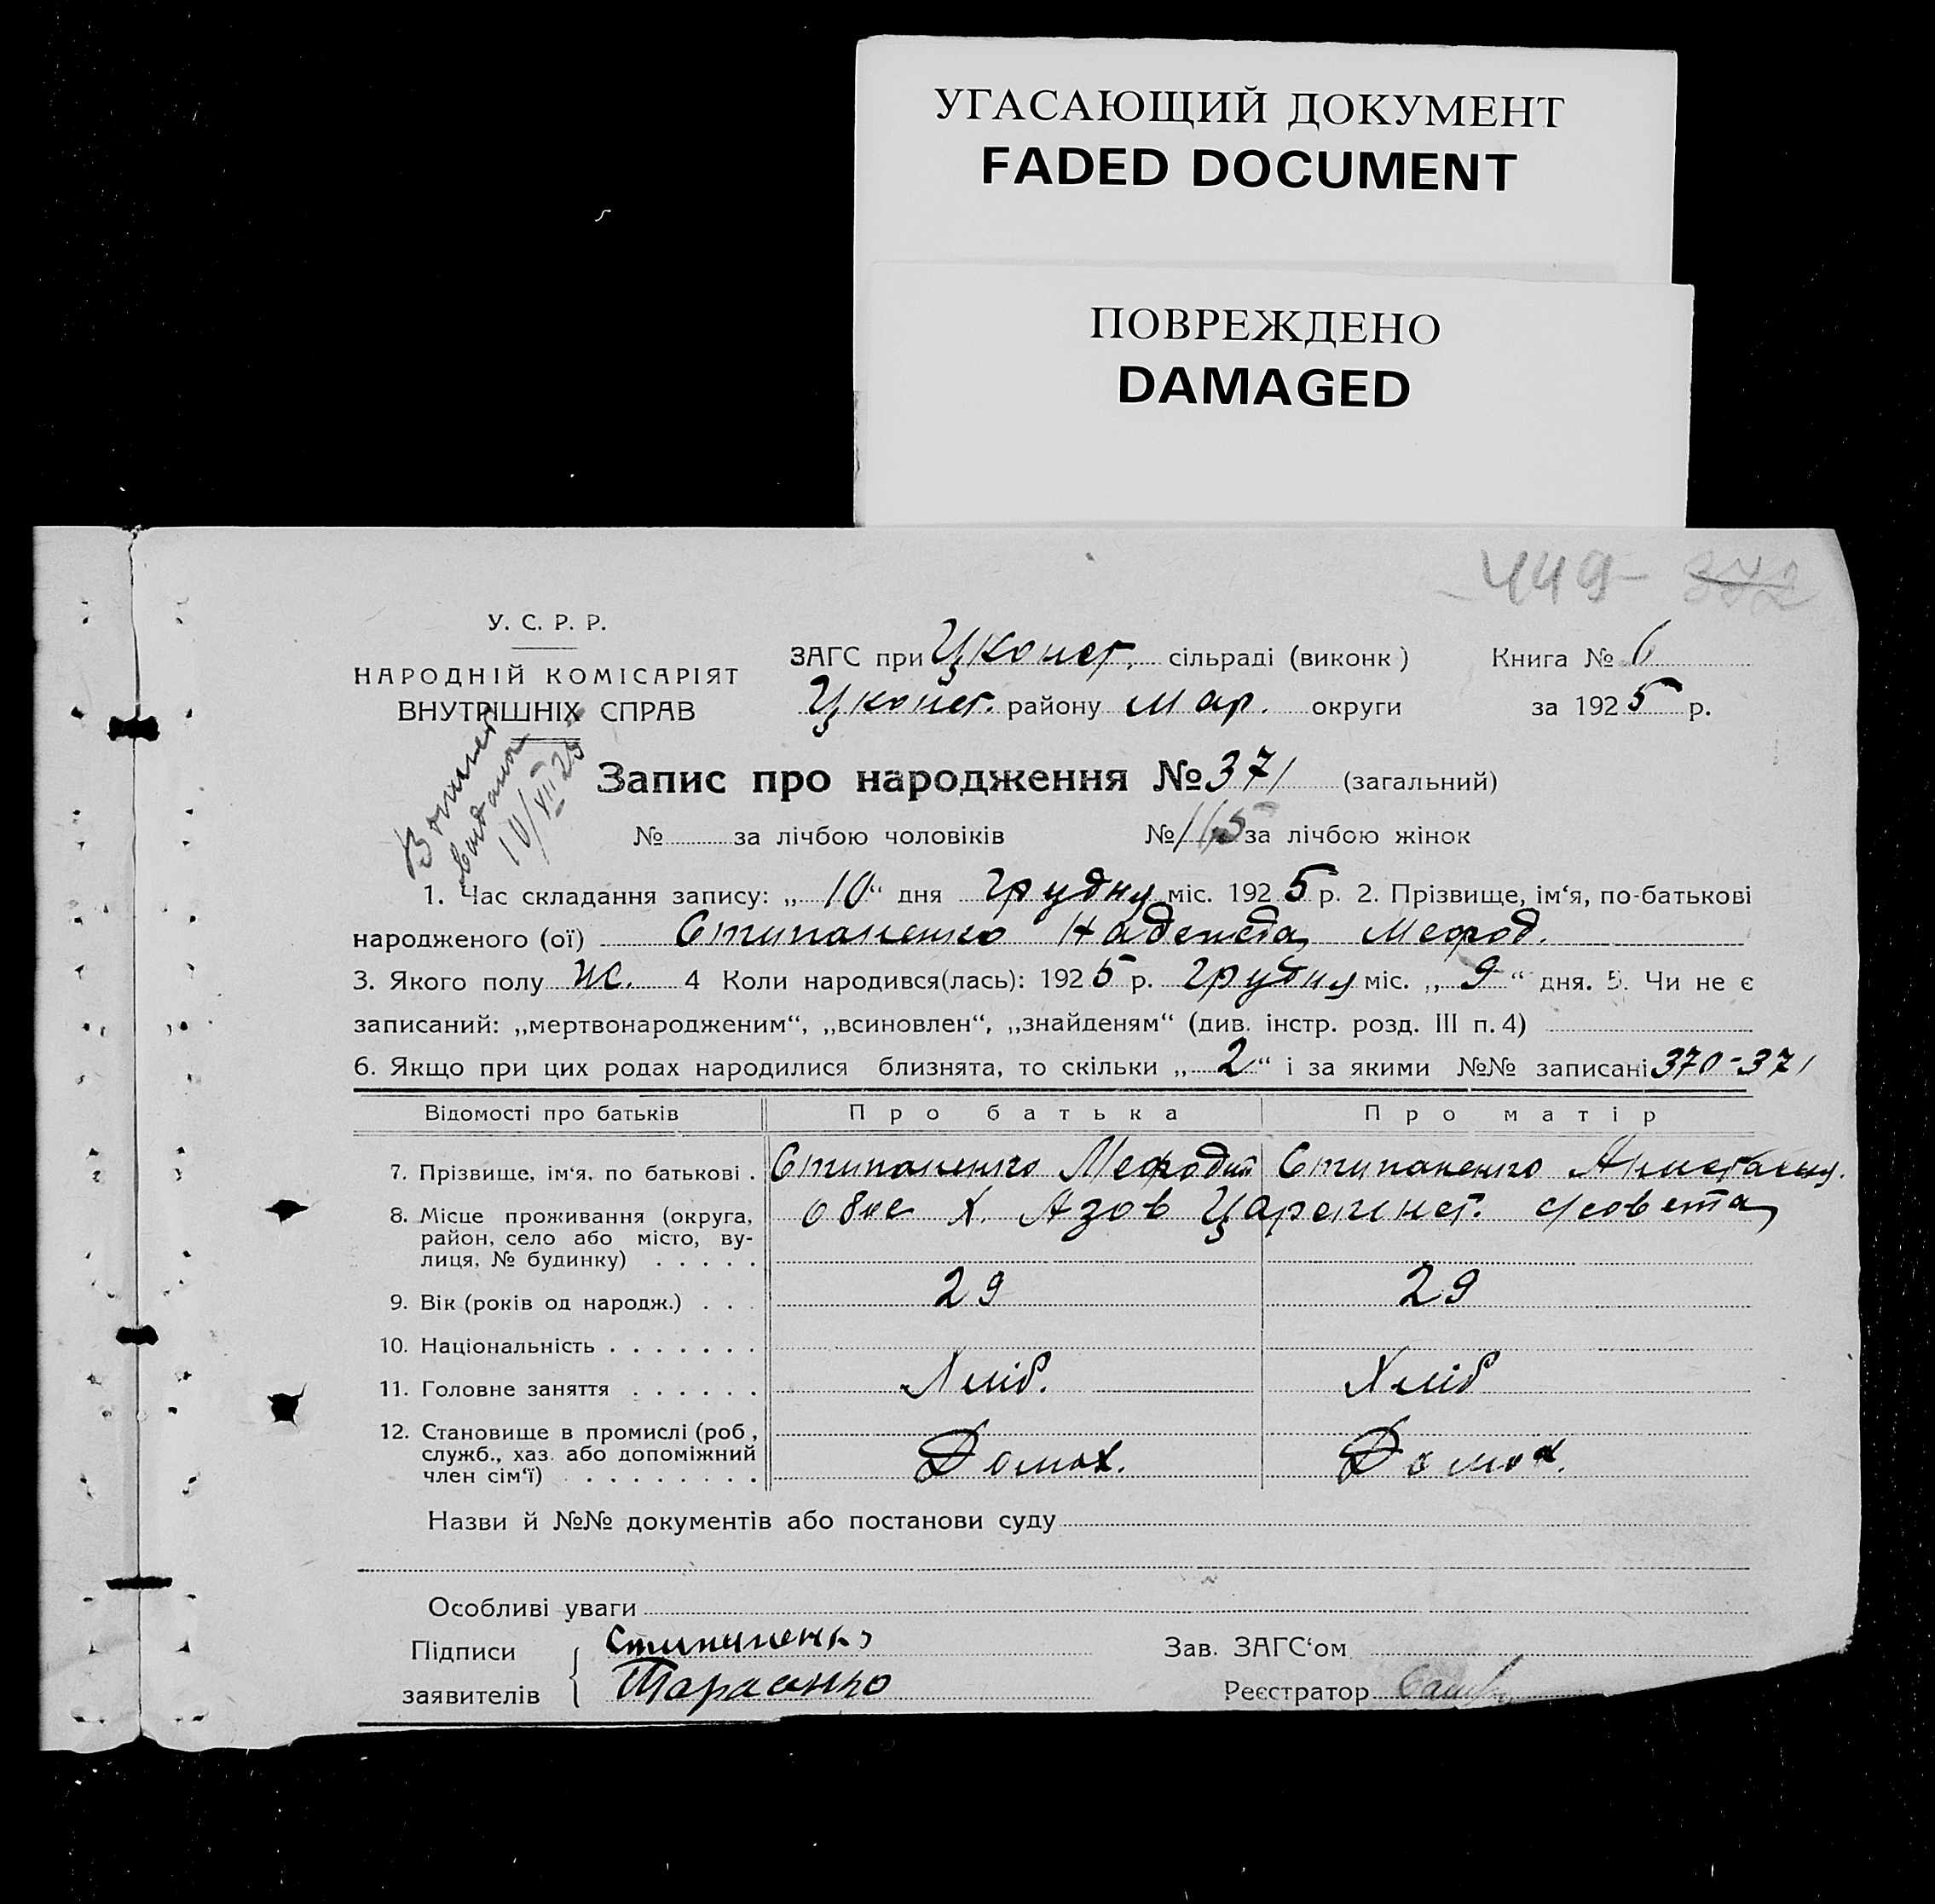 УГАСАЮЩИЙ ДОКУМЕНТ
FADED DOCUMENT
ПОВРЕЖДЕНО
DAMAGED
449- 372
У. С. Р. Р.
НАРОДНІЙ КОМІСАРІЯТ
ВНУТРІШНІХ СПРАВ
ЗАГС при Цконст. сільраді (виконк) Книга № 6
Цконст. району Мар. округи за 1925 р.
видана
10/XII 25
Запис про народження № 371 (загальний)
№ за лічбою чоловіків № 115 за лічбою жінок
1. Час складання запису: „10“ дня Грудну міс. 1925 р. 2. Прізвище, ім‘я, по-батькові
народженого (ої) Стипаненко Надежда Мефод.
3. Якого полу ж. 4 Коли народився(лась): 1925 р. Грудну міс. „9“ дня. 5. Чи не є
записаний: „мертвонародженим“, „всиновлен“, „знайденям“ (див. інстр. розд. III п. 4)
6. Якщо при цих родах народилися близнята, то скільки „2“ і за якими №№ записані 370-371
Відомості про батьків Про батька Про матір
7. Прізвище, ім‘я, по батькові . Стипаненко Мефодий Стипаненко
8. Місце проживання (округа, район, село або місто, вулиця, № будинку) . . . . . обое х. Азов Царекнст. с/совета
9. Вік (років од народж.) . . . 29 29
10. Національність . . . . . . .
11. Головне заняття . . . . . . Хліб. Хліб
12. Становище в промислі (роб, служб., хаз. або допоміжний член сім‘ї) . . . . . . . . . Домох. Домох.
Назви й №№ документів або постанови суду
Особливі уваги
Підписи Стипаненко Зав. ЗАГС‘ом
заявителів Тарасенко Реєстратор